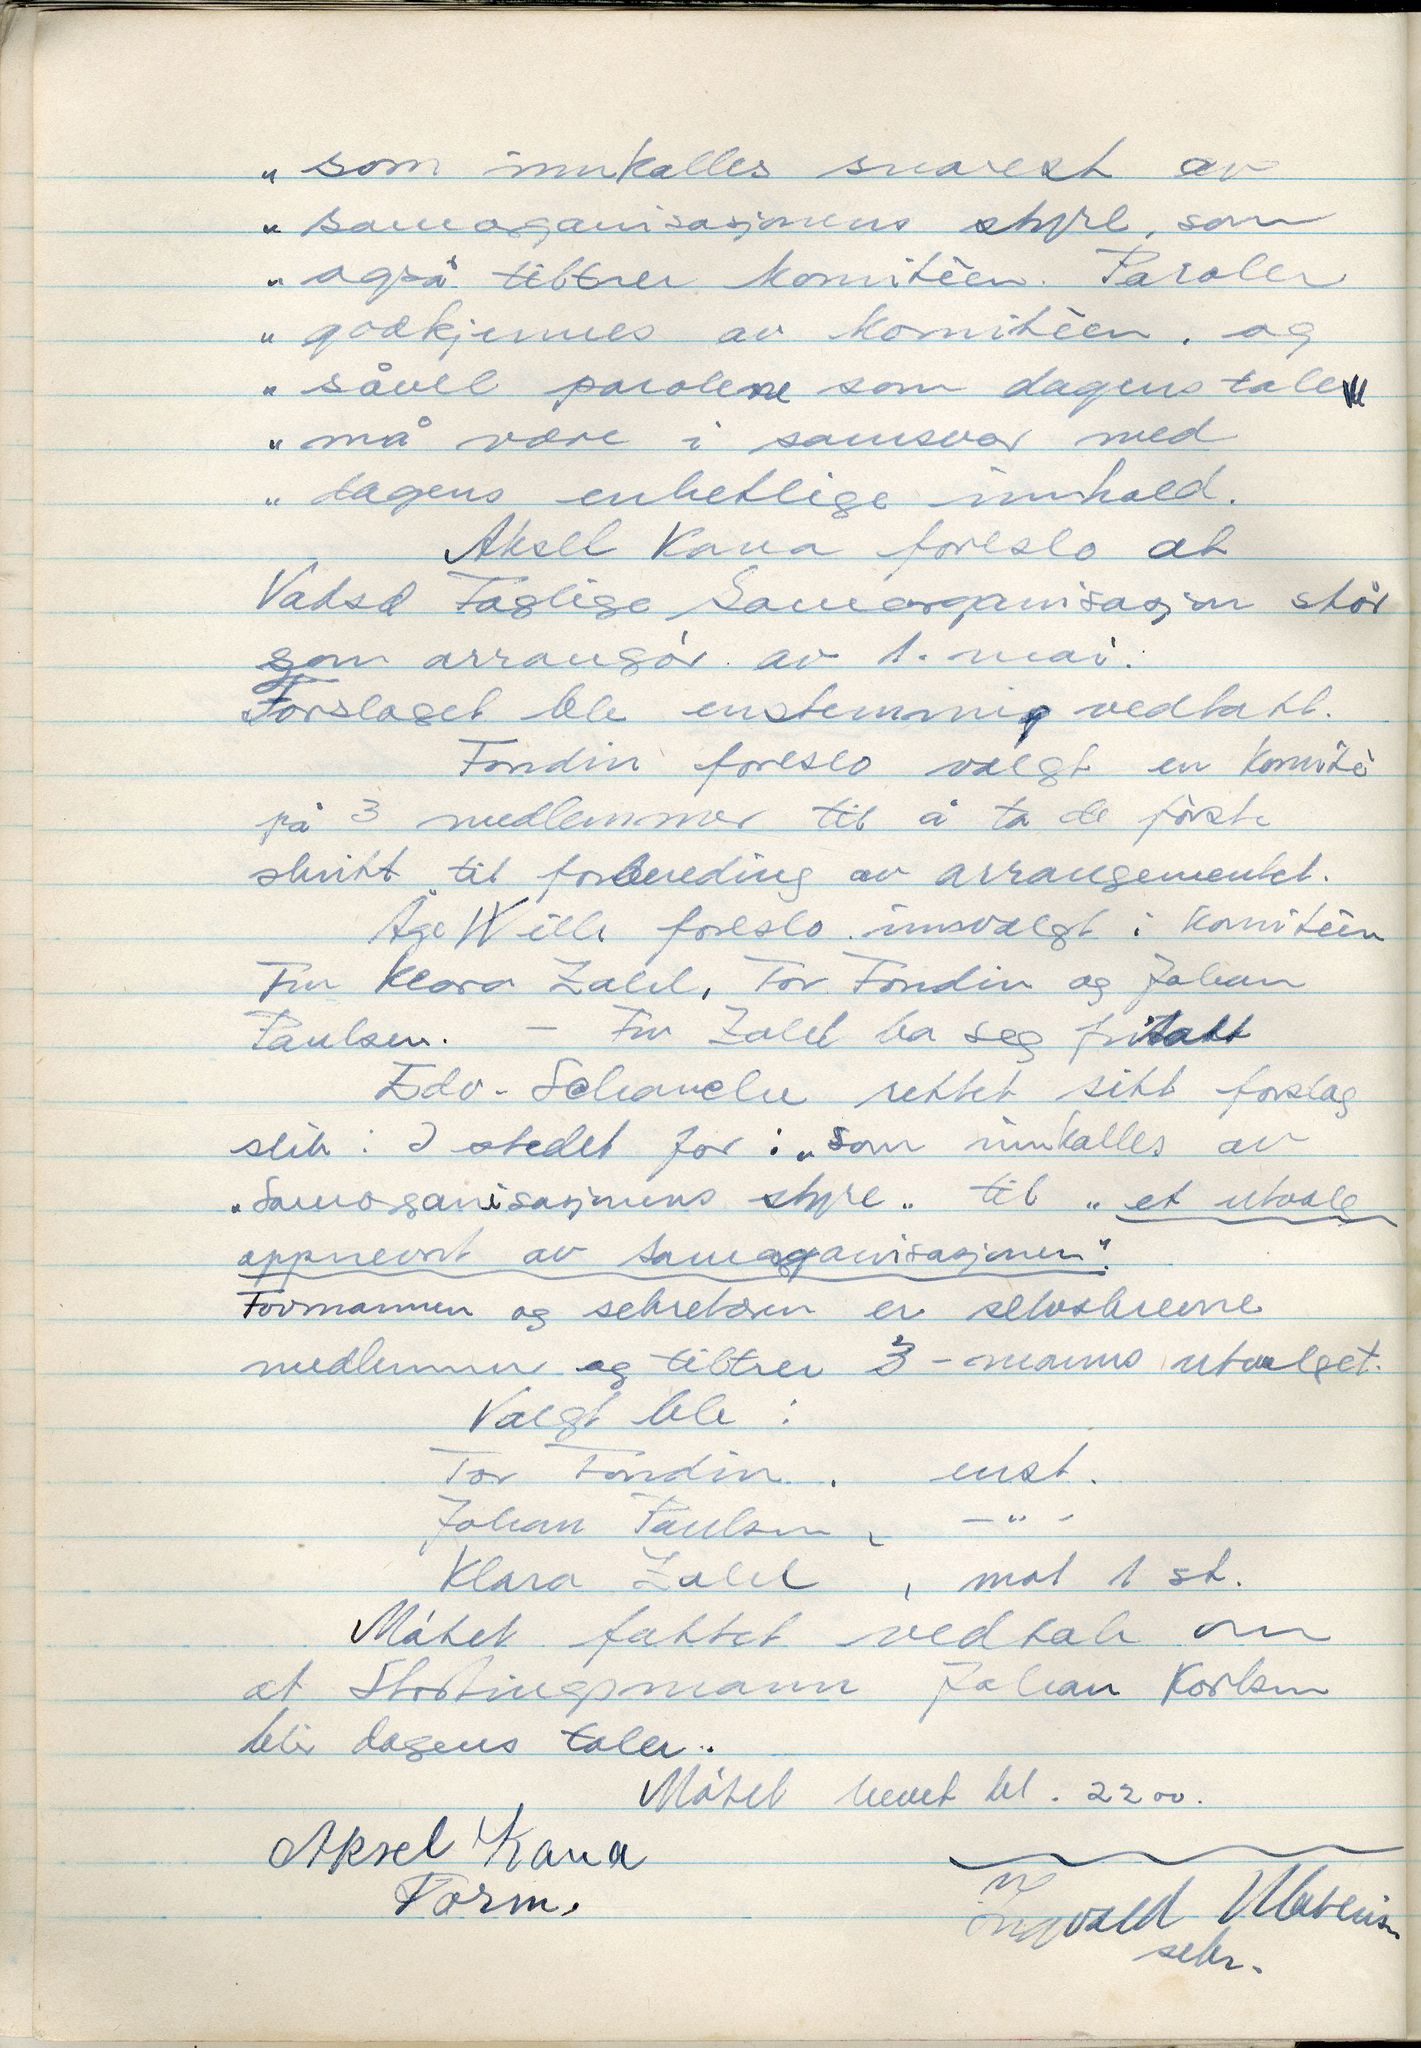 „ som innkalles snarest av
„ samorganisasjonens styre, som
„ også tiltrer komitèen. Paroler
„ godkjennes av komitèen, og
„ såvel parolene som dagens tale
„ må være i samsvar med
„ dagens enhetlige innhold.
Aksel Kana foreslo at
Vadsø Faglige Samorganisasjon står
som arrangør av 1. mai.
Forslaget ble enstemmig vedtatt.
Fondin foreslo valgt en komitè
på 3 medlemmer til å ta de første
skritt til forbereding av arrangementet.
Åge Wille foreslo innvalgt i komitèen
Fru Klara Zahl, Tor Fondin og Johan
Paulsen. — Fru Zahl ba seg fritatt
Edv. Schanche rettet sitt forslag
slik: I stedet for: „som innkalles av
„Samorganisasjonens styre„ til „et utvalg
oppnevnt av samorganisasjonen".
Formannen og sekretæren er selvskrevne
medlemmer og tiltrer 3-manns utvalget.
Valgt ble:
Tor Fondin, enst.
Johan Paulsen, —"-
Klara Zahl, mot 1 st.
Møtet fattet vedtak om
at Stortingsmann Johan Karlsen
blir dagens taler.
Møtet hevet kl. 2200.
Aksel Kana
Form.
Ingvald Mathisen
sekr.